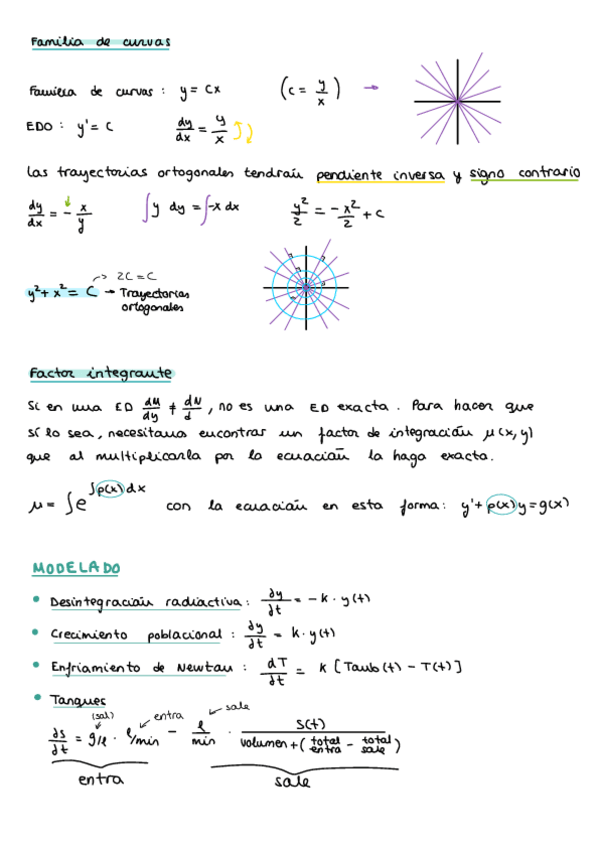 Familia de curvas
Familia de curvas : y = Cx (C = y/x) →
EDO : y' = C dy/dx = y/x
Las trayectorias ortogonales tendrán pendiente inversa y signo contrario
dy/dx = - x/y ∫y dy = ∫-x dx y²/2 = -x²/2 + C
2C = C
y² + x² = C → Trayectorias
ortogonales
Factor integrante
Si en una ED dM/dy ≠ dN/d , no es una ED exacta. Para hacer que
sí lo sea, necesitamos encontrar un factor de integración μ(x,y)
que al multiplicarla por la ecuación la haga exacta.
μ = ∫e^∫p(x)dx con la ecuación en esta forma: y' + p(x)y = g(x)
MODELADO
• Desintegración radiactiva : ∂y/∂t = -k · y(t)
• Crecimiento poblacional : ∂y/∂t = k · y(t)
• Enfriamiento de Newton : dT/∂t = k [Tamb(t) - T(t)]
• Tanques
(sal) entra sale
∂s/∂t = g/ℓ · ℓ/min - ℓ/min · S(t)/volumen + (total entra - total sale)
entra sale